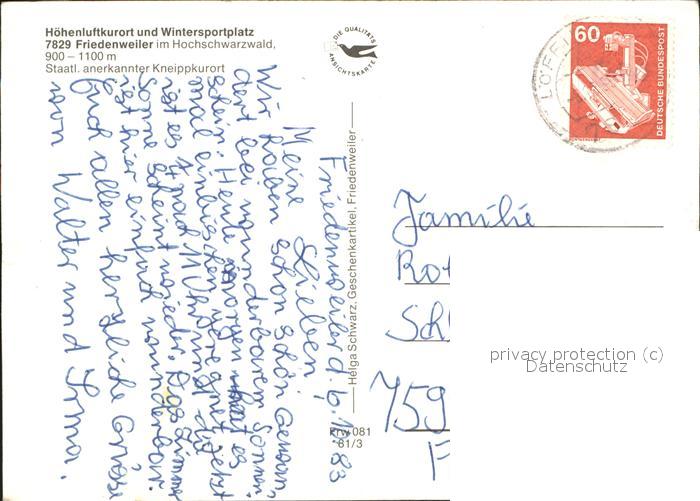 Höhenluftkurort und Wintersportplatz
7829 Friedenweiler im Hochschwarzwald,
900 – 1100 m
Staatl. anerkannter Kneippkurort
DIE QUALITÄTS
ANSICHTSKARTE
60
DEUTSCHE BUNDESPOST
LÖFFI
Friedenweiler d. 6. 83
Meine Lieben
Wir haben schon schön
dert bei wunderbarem Sonnen-
schein. Heute morgen hat es
mal ein bischen geregnet jetzt
ist es 11 Uhr und die
Sonne scheint wieder. Das Zimmer
ist hier einfach wunderbar.
Euch allen herzliche Grüße
von Walter und Irma.
Helga Schwarz, Geschenkartikel, Friedenweiler
Frw 081
81/3
Familie
Ro
Sch
759
F
privacy protection (c)
Datenschutz